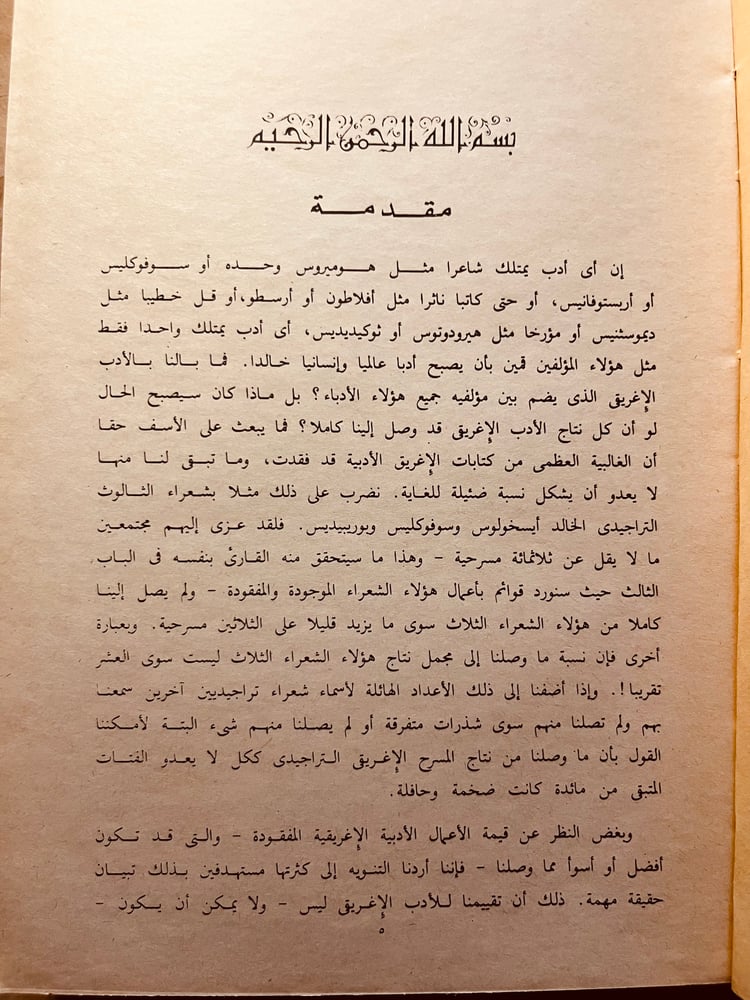 بسم الله الرحمن الرحيم
مقدمة
إن أى أدب يمتلك شاعرا مثل هوميروس وحده أو سوفوكليس
أو أريستوفانيس، أو حتى كاتبا ناثرا مثل أفلاطون أو أرسطو، أو قل خطيبا مثل
ديموسثنيس أو مؤرخا مثل هيرودوتوس أو ثوكيديديس، أى أدب يمتلك واحدا فقط
مثل هؤلاء المؤلفين قمين بأن يصبح أدبا عالميا وإنسانيا خالدا. فما بالنا بالأدب
الإغريقى الذى يضم بين مؤلفيه جميع هؤلاء الأدباء؟ بل ماذا كان سيصبح الحال
لو أن كل نتاج الأدب الإغريقى قد وصل إلينا كاملا؟ فما يبعث على الأسف حقا
أن الغالبية العظمى من كتابات الإغريق الأدبية قد فقدت، وما تبقى لنا منها
لا يعدو أن يشكل نسبة ضئيلة للغاية. نضرب على ذلك مثلا بشعراء الثالوث
التراجيدى الخالد أيسخولوس وسوفوكليس ويوريبيديس. فلقد عزى إليهم مجتمعين
ما لا يقل عن ثلاثمائة مسرحية – وهذا ما سيتحقق منه القارئ بنفسه فى الباب
الثالث حيث سنورد قوائم بأعمال هؤلاء الشعراء الموجودة والمفقودة – ولم يصل إلينا
كاملا من هؤلاء الشعراء الثلاث سوى ما يزيد قليلا على الثلاثين مسرحية. وبعبارة
أخرى فإن نسبة ما وصلنا إلى مجمل نتاج هؤلاء الشعراء الثلاث ليست سوى العشر
تقريبا!. وإذا أضفنا إلى ذلك الأعداد الهائلة لأسماء شعراء تراجيديين آخرين سمعنا
بهم ولم تصلنا منهم سوى شذرات متفرقة أو لم يصلنا منهم شىء البتة لأمكننا
القول بأن ما وصلنا من نتاج المسرح الإغريقى التراجيدى ككل لا يعدو الفتات
المتبقى من مائدة كانت ضخمة وحافلة.
وبغض النظر عن قيمة الأعمال الأدبية الإغريقية المفقودة – والتى قد تكون
أفضل أو أسوأ مما وصلنا – فإننا أردنا التنويه إلى كثرتها مستهدفين بذلك تبيان
حقيقة مهمة. ذلك أن تقييمنا للأدب الإغريقى ليس – ولا يمكن أن يكون –
٥